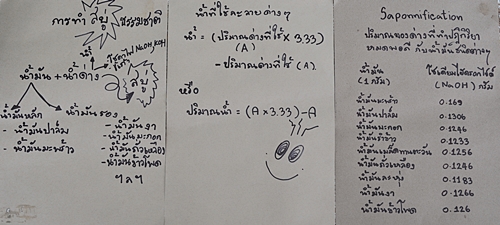 การทำ สบู่ ธรรมชาติ
น้ำ
น้ำมัน + น้ำด่าง
NaOH, KOH
สบู่
น้ำมันหลัก
- น้ำมันปาล์ม
- น้ำมันมะพร้าว
น้ำมันรอง
- น้ำมันงา
- น้ำมันมะกอก
- น้ำมันถั่วเหลือง
- น้ำมันข้าวโพด
ฯลฯ
น้ำที่ใช้ละลายด่างๆ
น้ำ = (ปริมาณด่างที่ใช้ x 3.33)
(A)
- ปริมาณด่างที่ใช้ (A)
หรือ
ปริมาณน้ำ = (A x 3.33) - A
Saponnification
ปริมาณของด่างที่ทำปฏิกิริยา
หมดพอดี กับน้ำมันชนิดต่างๆ
น้ำมัน
(1 กรัม)
โซเดียมไฮดรอกไซด์
(NaOH) กรัม
น้ำมันมะพร้าว 0.169
น้ำมันปาล์ม 0.1306
น้ำมันมะกอก 0.1246
น้ำมันรำข้าว 0.1233
น้ำมันเมล็ดทานตะวัน 0.1256
น้ำมันถั่วเหลือง 0.1246
น้ำมันละหุ่ง 0.1183
น้ำมันงา 0.1266
น้ำมันข้าวโพด 0.126